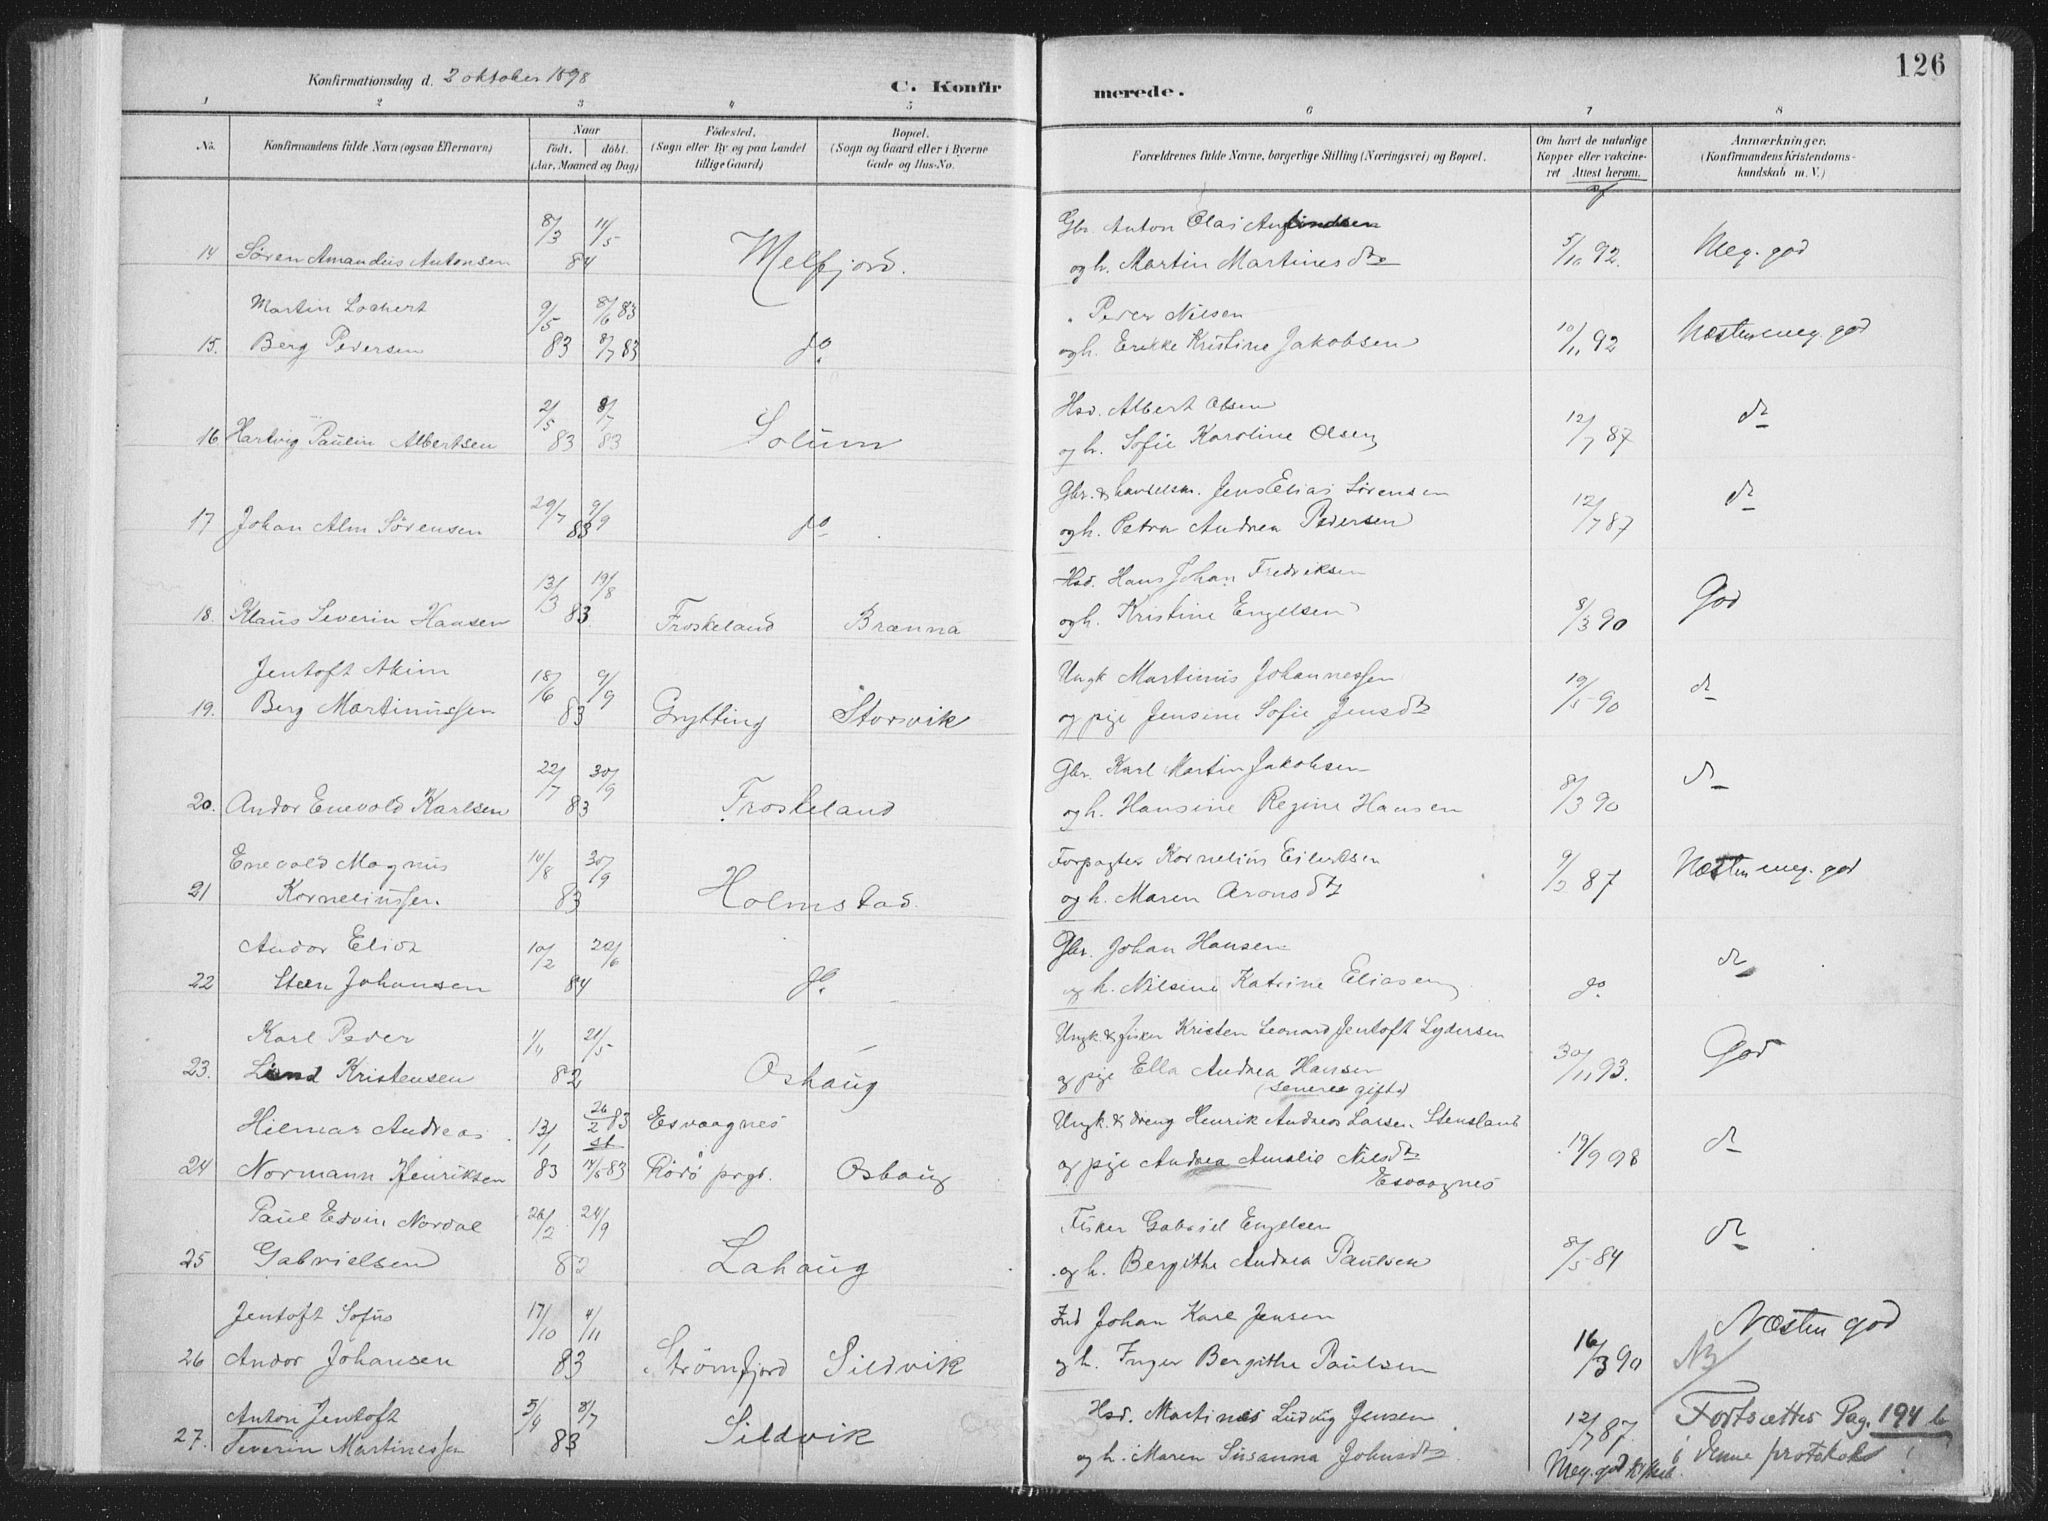 126
Konfirmationsdag d. 2 oktober 1898
C. Konfirmerede.
1 2 3 4 5 6 7 8
No. Konfirmandens fulde Navn (ogsaa Efternavn) Naar født. døbt. (Aar, Maaned og Dag) Fødested. (Sogn eller By og paa Landet tillige Gaard) Bopæl. (Sogn og Gaard eller i Byerne Gade og Hus-No. Forældrenes fulde Navne, borgerlige Stilling (Næringsvei) og Bopæl. Om havt de naturlige Kopper eller vakcineret Attest herom. Anmærkninger. (Konfirmandens Kristendomskundskab m. V.)
8/3 11/5 Gbr. Anton Olai
14 Søren Amandus Antonsen 84 Melfjord. og h. Martin Martines dtr 5/10 92. Meg. god
Martin Lockert 9/5 8/6 83 Peder Nilsen
15. Berg Pedersen 83 8/7 83 do. og h. Erikke Kristine Jakobsen 10/11 92 Næsten meg. god
2/5 8/7 Hsd. Albert Olsen
16 Hartvig Paulin Albertsen 83 83 Solum og h. Sofie Karoline Olsen 12/7 87 do
29/7 9/9 Gbr. & handelsm. Jens Elias Sørensen
17 Johan Alm Sørensen 83 do og h. Petra Andrea Pedersen 12/7 87 do
13/3 19/8 Hsd. Hans Johan Fredriksen
18. Klaus Severin Hansen 83 Froskeland Brænna og h. Kristine Engelsen 8/3 90 God
Jentoft Akim 18/6 9/9 Ungk Martinus Johannessen
19. Berg Martinussen 83 Grytting Storvik og pige Jensine Sofie Jensdtr 19/5 90 do
22/7 30/9 Gbr. Karl Martin Jakobsen
20. Andor Enevold Karlsen 83 Froskeland og h. Hansine Regine Hansen 8/3 90 do
Enevold Magnus 10/8 30/9 Forpagter Kornelius Eilertsen
21 Korneliussen 83 Holmstad. og h. Maren Aronsdtr 9/2 87 Næsten meg. god
Andor Elias 10/2 20/6 Gbr. Johan Hansen
22 Steen Johansen 84 do. og h. Nilsine Katrine Eliasen do. do
Karl Peder 1/11 21/5 Ungk. & fisker Kristen Leonard Jentoft Lydersen
23. Lund Kristensen 82 Oshaug og pige Ella Andrea Hansen 30/11 93. God
(senere gifte)
Hilmar Andreas 13/1 26/2 83 Esvaagnes Ungk. & dreng Henrik Andreas Larsen Stensland
24 Normann Henriksen 83 14/5 83 Rödö prgt. Oshaug og pige Andrea Amalie Nilsdtr 19/9 98 do
Esvaagnes
Paul Edvin Nordal 26/2 24/9 Fisker Gabriel Engelsen
25 Gabrielsen 82 Lahaug og h. Bergithe Andrea Paulsen 8/5 84 do
Jentoft Sofus 17/10 4/11 Ind Johan Karl Jensen
26 Andor Johansen 83 Strømfjord Sildvik og h. Inger Bergithe Paulsen 16/3 90 Næsten god
Anton Jentoft 5/4 8/7 Hsd. Martines Ludvig Jensen 12/7 87. Fortsættes Pag. 194 b
27. Severin Martinessen 83 Sildvik og h. Maren Susanna Johnsdtr Meg. god i denne protokol!